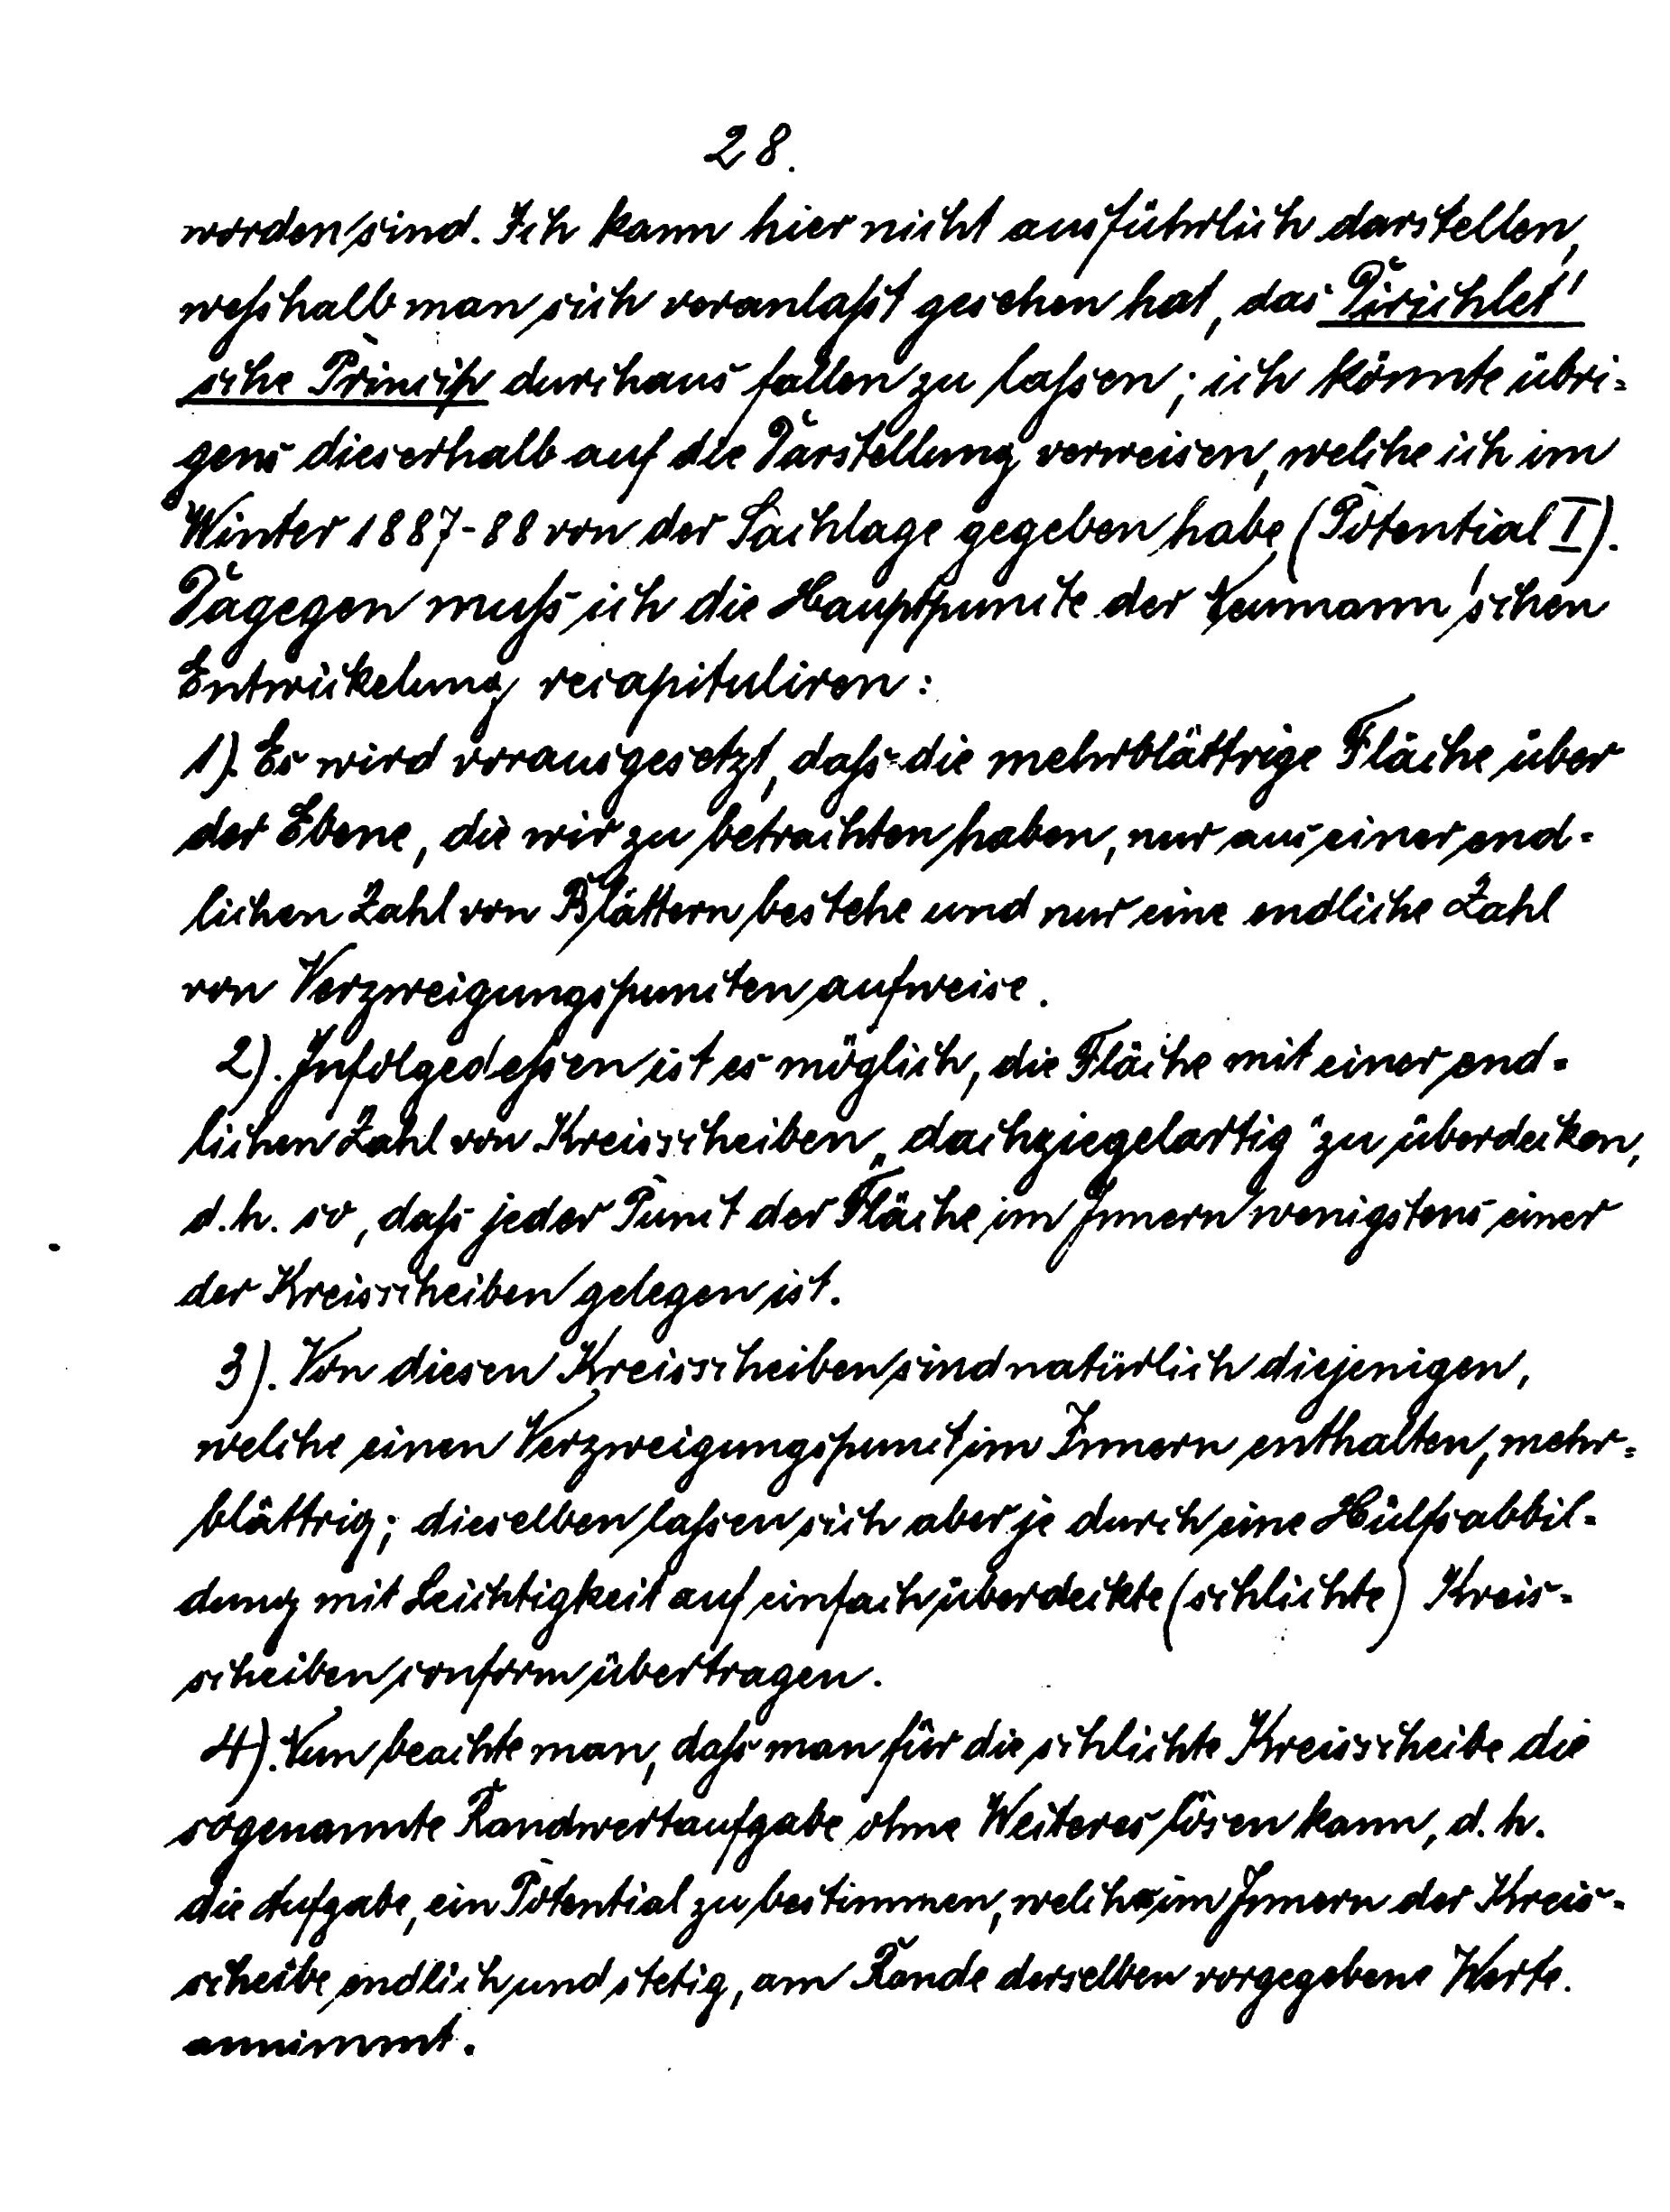 28.
worden sind. Ich kann hier nicht ausführlich darstellen,
weßhalb man sich veranlaßt gesehen hat, das Dirichlet'
sche Princip durchaus fallen zu laßen; ich könnte übri-
gens dieserhalb auf die Darstellung verweisen, welche ich im
Winter 1887-88 von der Sachlage gegeben habe (Potential I).
Dagegen muß ich die Hauptpuncte der Neumann'schen
Entwickelung recapituliren:
1). Es wird vorausgesetzt, daß die mehrblättrige Fläche über
der Ebene, die wir zu betrachten haben, nur aus einer end-
lichen Zahl von Blättern bestehe und nur eine endliche Zahl
von Verzweigungspuncten aufweise.
2). Infolgedeßen ist es möglich, die Fläche mit einer end-
lichen Zahl von Kreisscheiben „dachziegelartig“ zu überdecken,
d.h. so, daß jeder Punct der Fläche im Innern wenigstens einer
der Kreisscheiben gelegen ist.
3). Von diesen Kreisscheiben sind natürlich diejenigen,
welche einen Verzweigungspunct im Innern enthalten, mehr-
blättrig; dieselben laßen sich aber je durch eine Hülfsabbil-
dung mit Leichtigkeit auf einfach überdeckte (schlichte) Kreis-
scheiben conform übertragen.
4). Nun beachte man, daß man für die schlichte Kreisscheibe die
sogenannte Randwertaufgabe ohne Weiteres lösen kann, d. h.
die Aufgabe, ein Potential zu bestimmen, welches im Innern der Kreis-
scheibe endlich und stetig, am Rande derselben vorgegebene Werte.
annimmt.